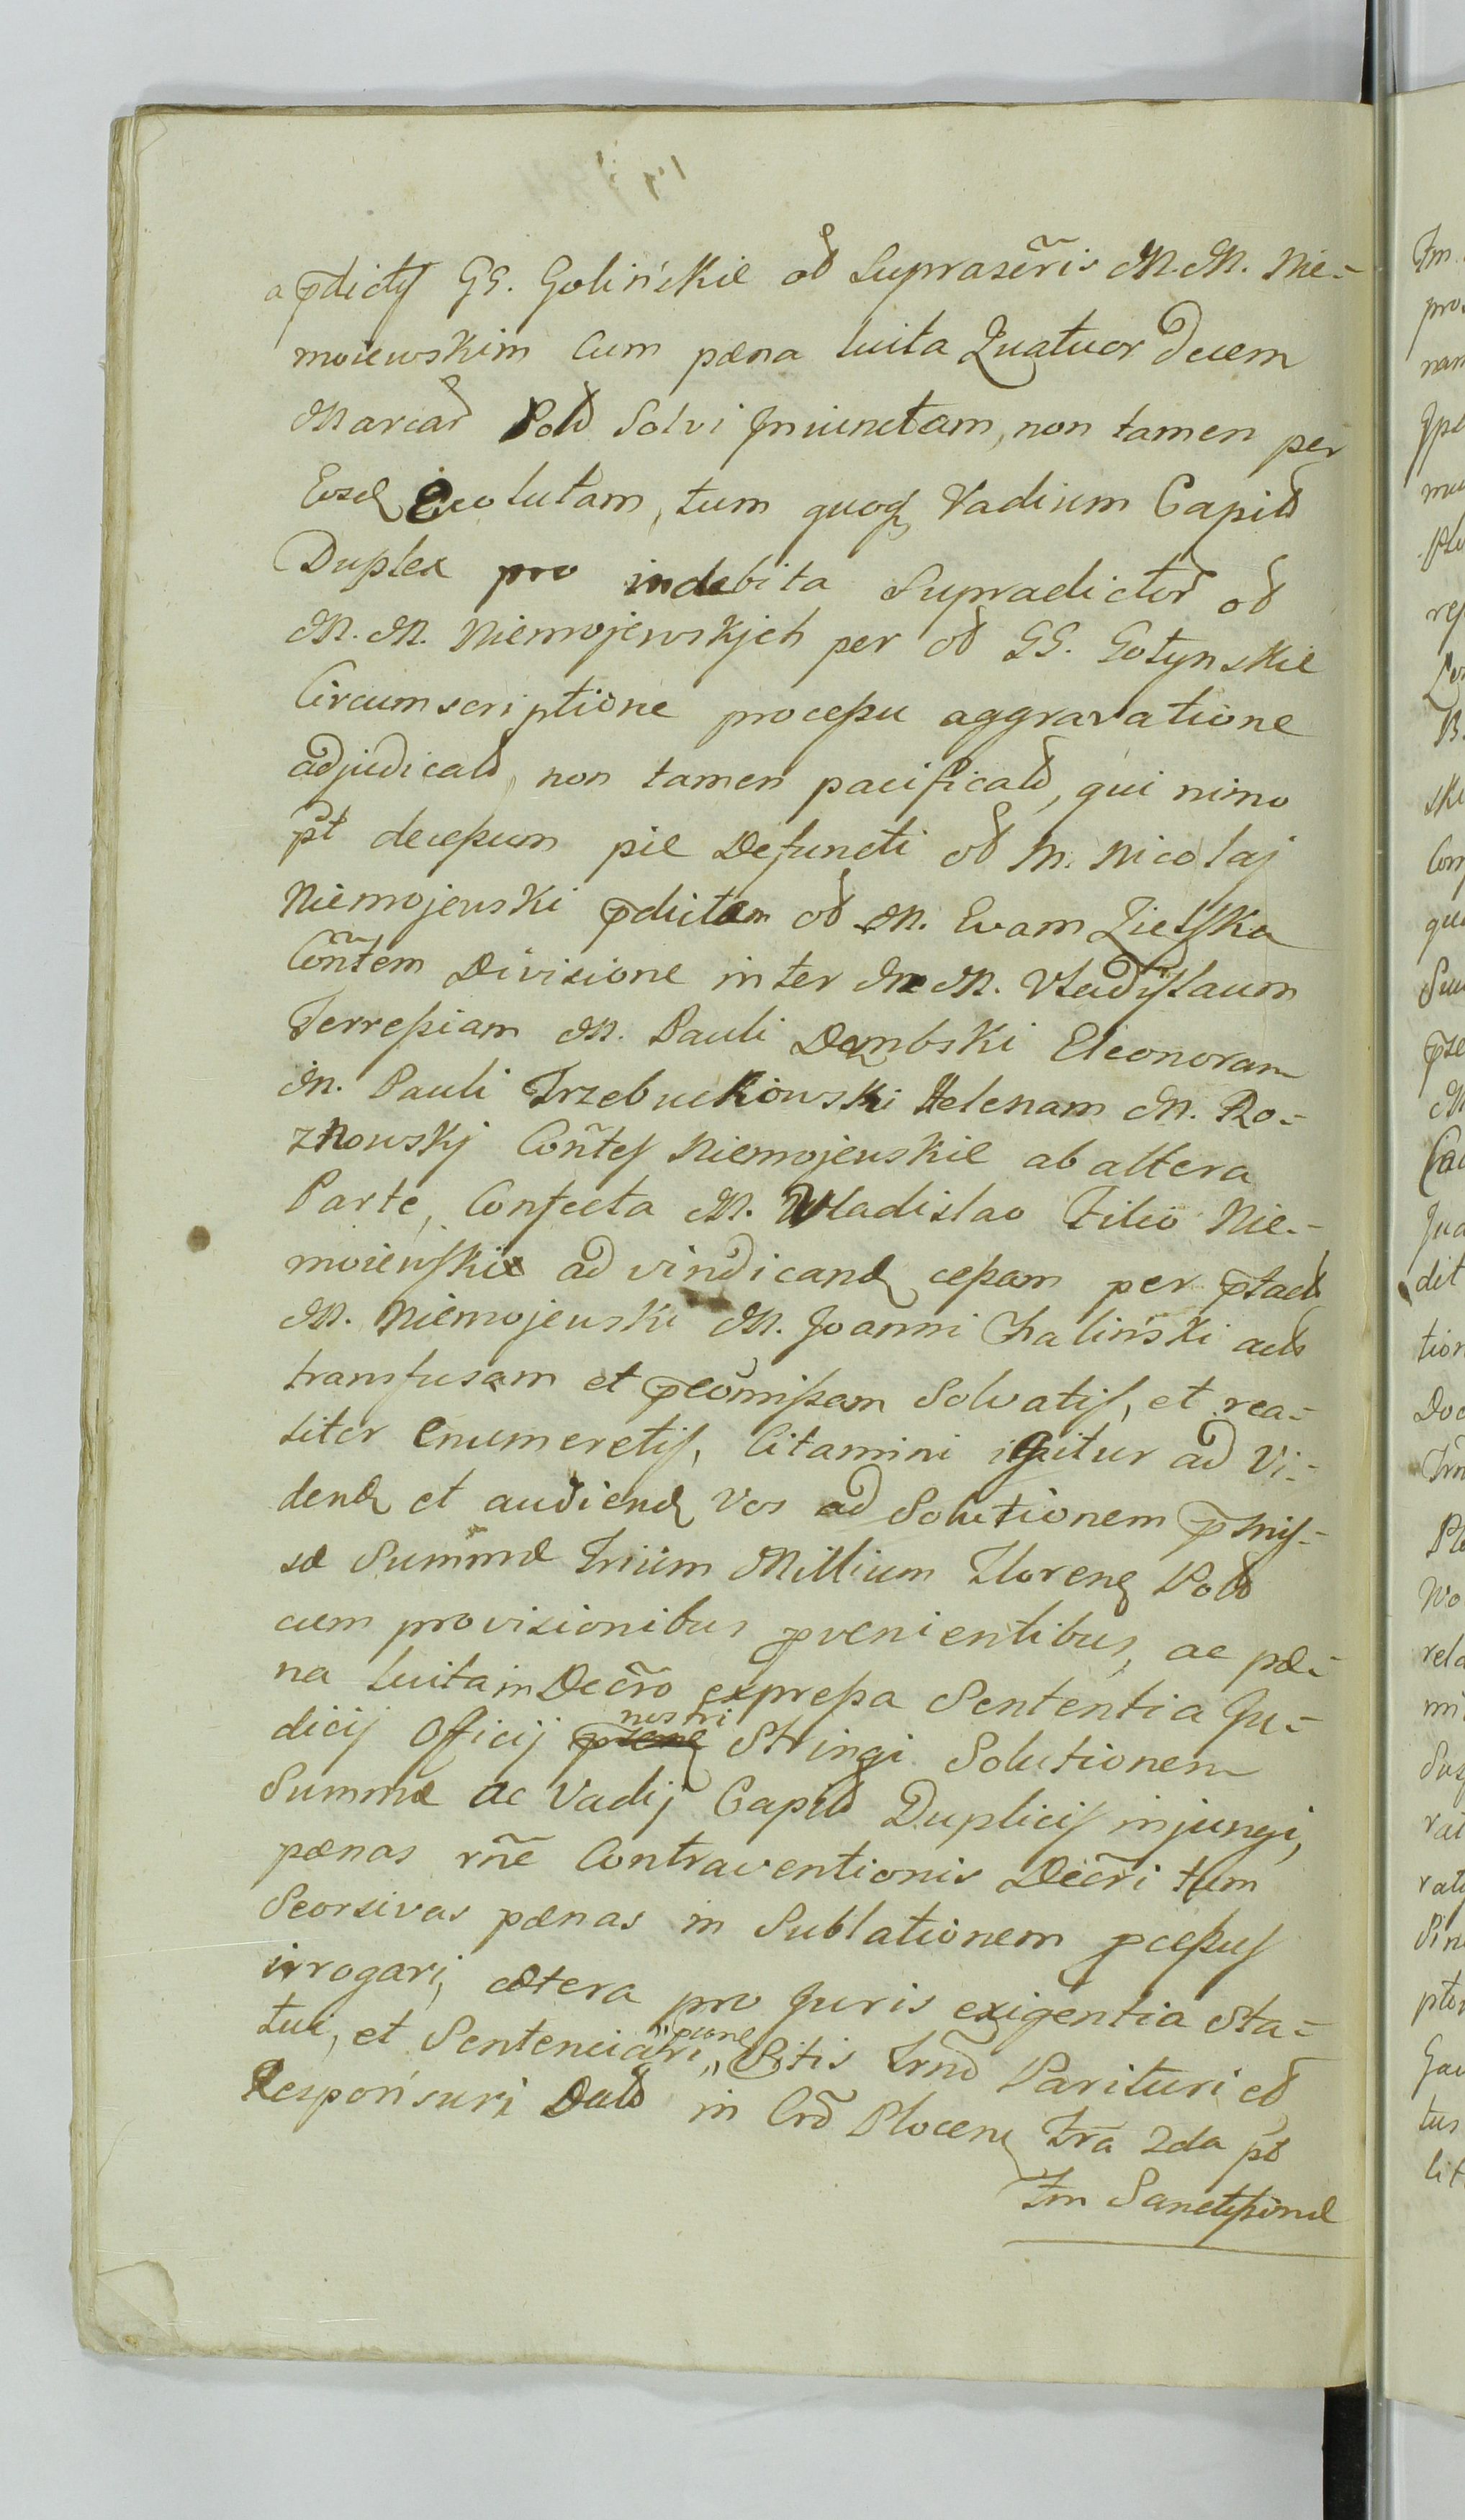 a pdictis GG. Golińskie olim Suprascris M. M. Nie=
moiewskim cum pæna luita Quatuor Decem
Marcar Pold Solvi Iniunctam, non tamen per
Eosd Exolutam, tum quoq Vadium Capitl
Duplex pro indebita Supradictor olim
M. M. Niemojewskich per olim GG. Gołynskie
Circumscriptione processu aggravatione
adjudicatd, non tamen pacificatd, qui nimo
pt decessum pie Defuncti olim M. Nicolaj
Niemojewski pdictam olim M. Evam Zielska
Contem Divisione inter M. M. Vladislaum
Terressiam M. Pauli Dąmbski Eleonoram
M. Pauli Trzebuchowski Helenam M. Ro=
znowskj Contes Niemojewskie ab altera
Parte, Confecta M. Wladislao Filio Nie=
moiewskie ad vindicand cessam per ptactd
M. Niemojewski M. Joanni Chaliński acts
transfusam et pcomissam Solvatis, et rea=
liter Enumeretis, Citamini igitur ad Vi=
dend et audiend Vos ad Solutionem pmis=
sæ Summæ Trium Millium Floreng Pold
cum provisionibus pvenientibus, ac pæ=
na luita in Decro expressa Sententia Ju=
dicij Officij nostri Stringi Solutionem
Summæ ac Vadij Capitl Duplicis injungi,
pænas rne Contraventionis Decri tum
Seorsivas pænas in Sublationem pcessus
irrogari, cætera pro Juris exigentia Sta=
tui, et Sentenciari, Sitis Trno Parituri et
Responsuri Datd in Crd Plocen Fra 2da pt
Fm Sanctissimæ